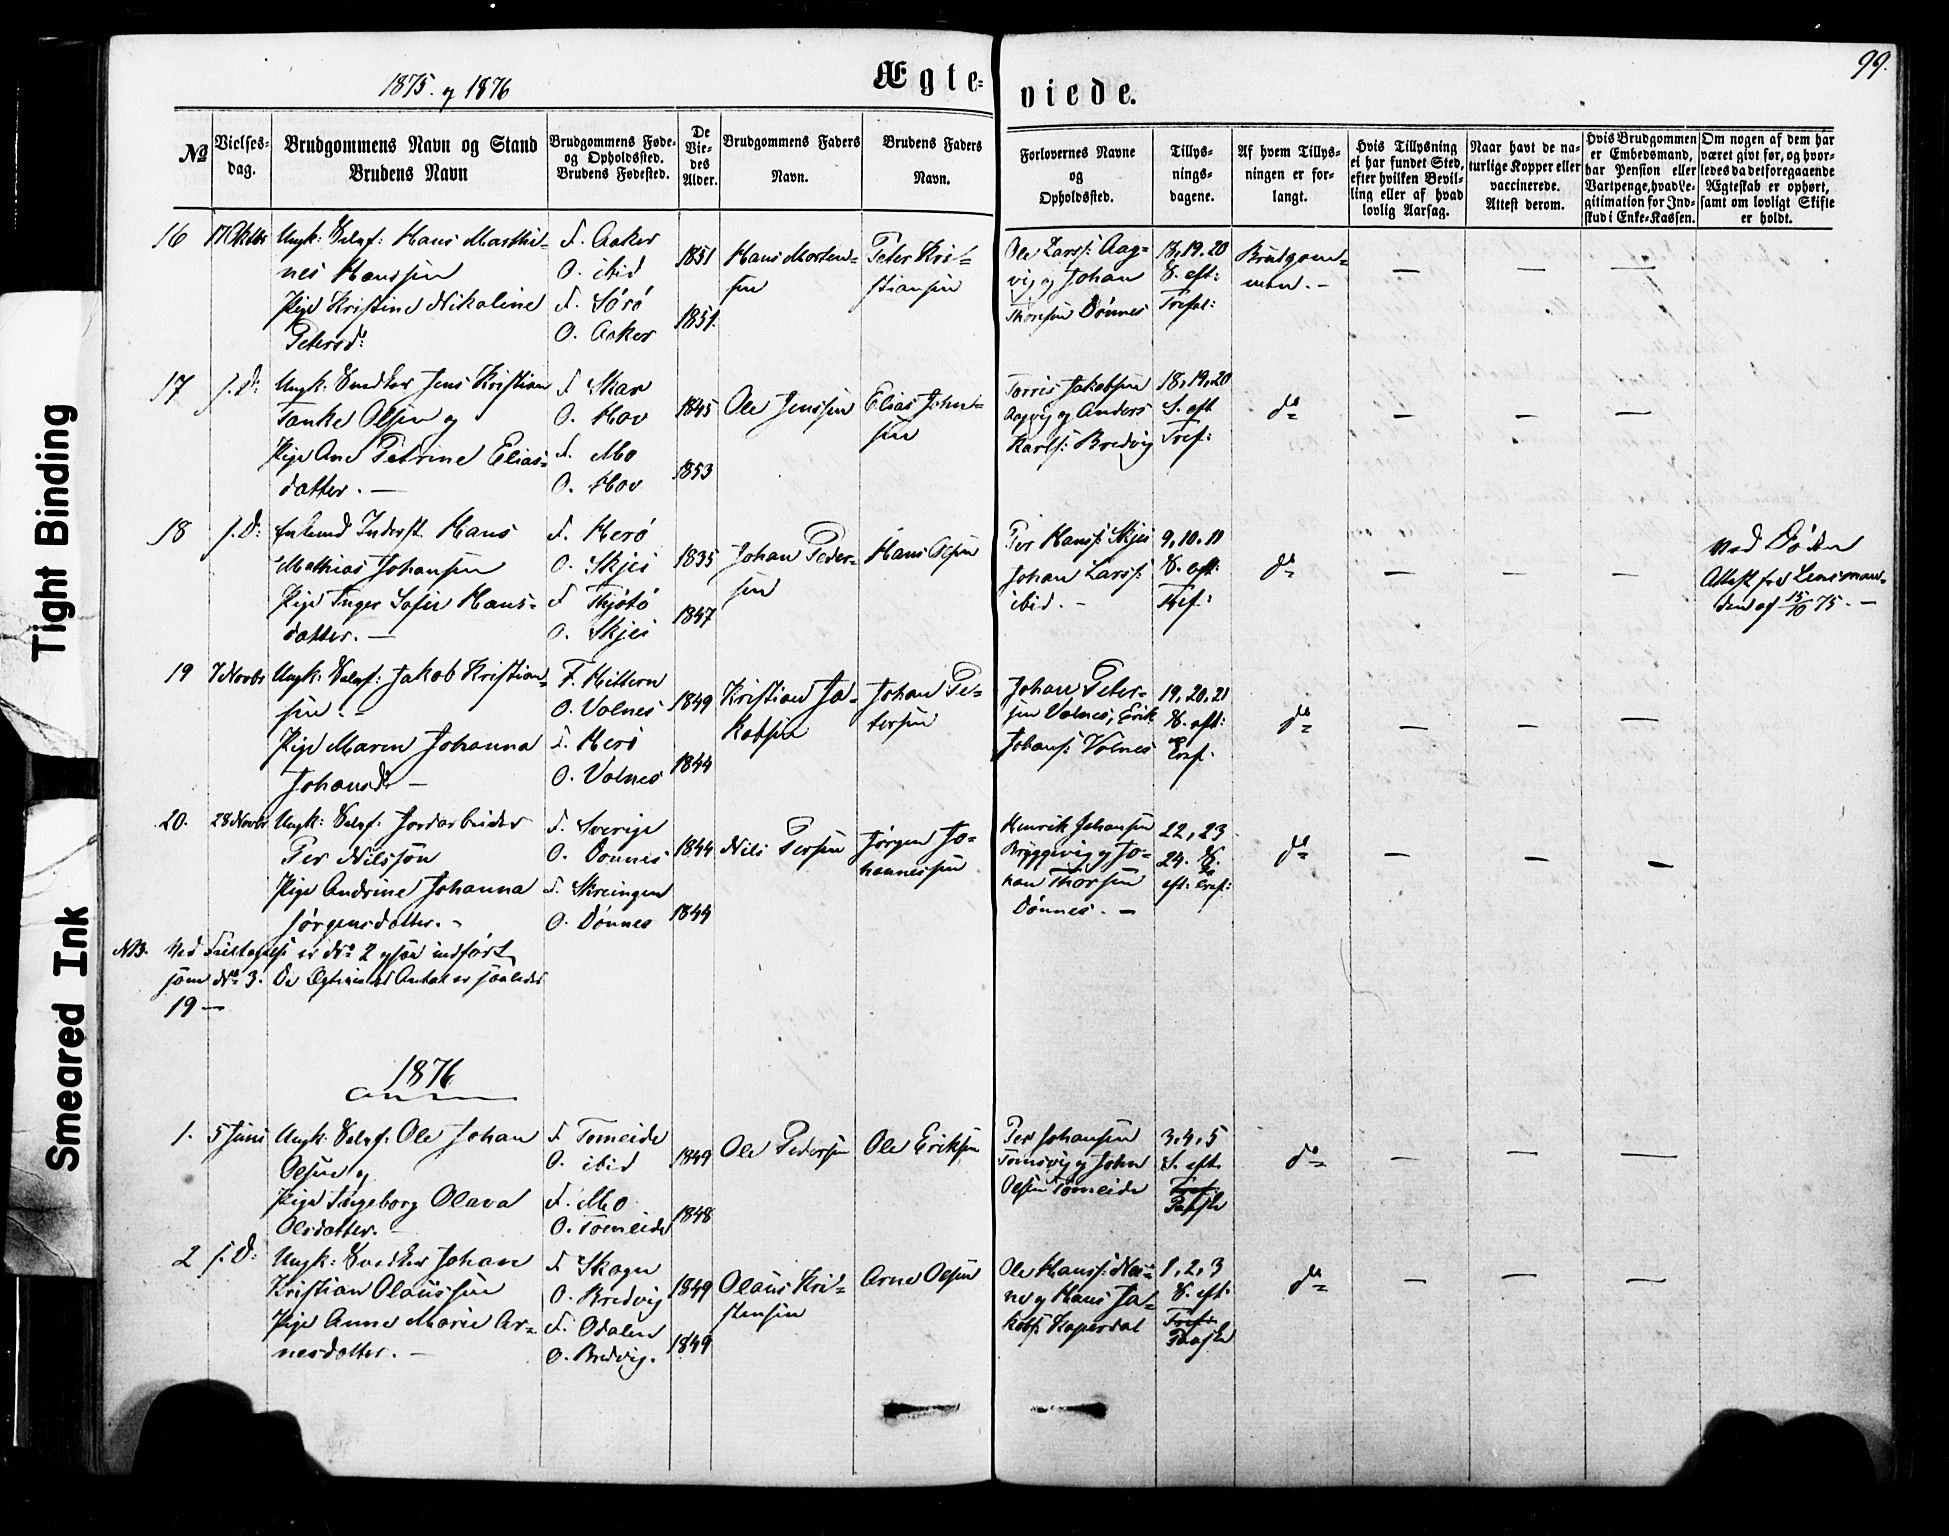 99.
1875. og 1876
Ægte-
viede.
Tight Binding
Smeared Ink
№
Vielses-
dag.
Brudgommens Navn og Stand
Brudens Navn
Brudgommens Føde-
og Opholdssted.
Brudens Fødested.
De
Vie-
des
Alder.
Brudgommens Faders
Navn.
Brudens Faders
Navn.
Forlovernes Navne
og
Opholdssted.
Tillys-
nings-
dagene.
Af hvem Tillys-
ningen er for-
langt.
Hvis Tillysning
ei har fundet Sted,
efter hvilken Bevil-
ling eller af hvad
lovlig Aarsag.
Naar havt de na-
turlige Kopper eller
vaccinerede.
Attest derom.
Hvis Brudgommen
er Embedsmand,
har Pension eller
Vartpenge, hvad Le-
gitimation for Ind-
skud i Enke-Kassen.
Om nogen af dem har
været givt før, og hvor-
ledes da det foregaaende
Ægteskab er ophørt,
samt om lovligt Skifte
er holdt.
16
17 Oktbr
Ungk: Selvf: Hans Marthi-
nes Hanssen
Pige Kristine Nikoline
Petersd:
F. Aaker
O. ibid
F. Sørø
O. Aaker
1851
1851.
Hans Morten-
sen
Peter Kri-
stiansen
Ole Larss: Aag-
vig og Johan
Thoresen Dønnes
18, 19. 20
S. eft:
Trefol:
Brudgom-
men. -
17
s. D:
Ungk: Smed Jens Kristian
Tanke Olsen og
Pige Ane Petrine Elias-
datter. —
F. Skar
O. Hov
F. Mo
O. Hov
1845
1853
Ole Jenssen
Elias John-
sen
Torris Jakobsen
Aagvig og Anders
Karls: Bredvig
18, 19, 20
S. eft
Tref:
do
18
s. D:
Enkemd Inderst. Hans
Mathias Johansen
Pige Inger Sofie Hans-
datter. —
F. Herø
O. Skjei
F. Thjøtø
O. Skjei
1835
1847
Johan Peder-
sen
Hans Olsen
Per Hans: Skjei
Johan Larss:
ibid. -
9, 10. 11
S. eft:
Tref:
do
Ved Døden
Attest fra Lensman-
den af 15/10 75. —
19
7 Novbr
Ungk: Selvf: Jakob Kristian-
sen. -
Pige Maren Johanna
Johansd. —
F. Hittern
O. Valnes
F. Herø
O. Valnes
1849
1844
Kristian Ja-
kobsen
Johan Pe-
tersen
Johan Peter-
sen Valnes, Erik
Johans: Valnes
19, 20, 21
S. eft:
do
20.
28 Novbr
Ungk: Selvf: Jordarbeider
Per Nilsson
Pige Andrine Johanna
Jørgensdatter. -
F. Sverige
O. Dønnes
F. Skreingen
O. Dønnes
1844
1844
Nils Persen
Jørgen Jo-
hannessen
Henrik Johansen
Bryggevig og Jo-
han Thorsen
Dønnes. —
22, 23
24. S.
eft:
do
NB. Ved er No 2 indført
som No 3. De Ægteviedes Antal er saaledes
19 —
1876
1.
5 Juni
Ungk: Selvf: Ole Johan
Olsen og
Pige Ingeborg Olava
Olsdatter. —
F. Tømeide
O. ibid
F. Mo
O. Tømeide
1849
1848
Ole Pedersen
Ole Eriksen
Per Johansen
Tømsvig og John
Olsen Tømeide
3, 4, 5
S. eft.
Tref.
Paaske
do
2
s. D:
Ungk: Johan
Kristian Olaüssen
Pige Anne Marie Ar-
nesdatter. —
F. Skogn
O. Bredvig
F. Odalen
O. Bredvig.
1849
1849
Olaüs Kri-
stensen
Arne Olsen
Ole Hanss:
og Hans Ja-
kobs:
1, 2, 3
S. eft.
Tref:
Paaske
do